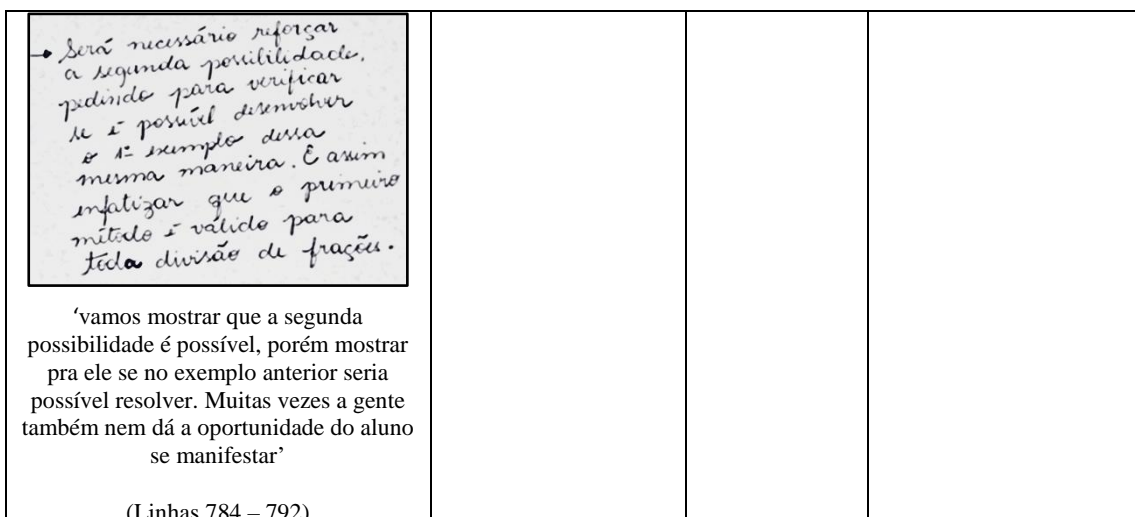 → Será necessário reforçar
a segunda possibilidade,
pedindo para verificar
se é possível desenvolver
o 1º exemplo dessa
mesma maneira. E assim
enfatizar que o primeiro
método é válido para
toda divisão de frações.
‘vamos mostrar que a segunda
possibilidade é possível, porém mostrar
pra ele se no exemplo anterior seria
possível resolver. Muitas vezes a gente
também nem dá a oportunidade do aluno
se manifestar’
(Linhas 784 – 792)